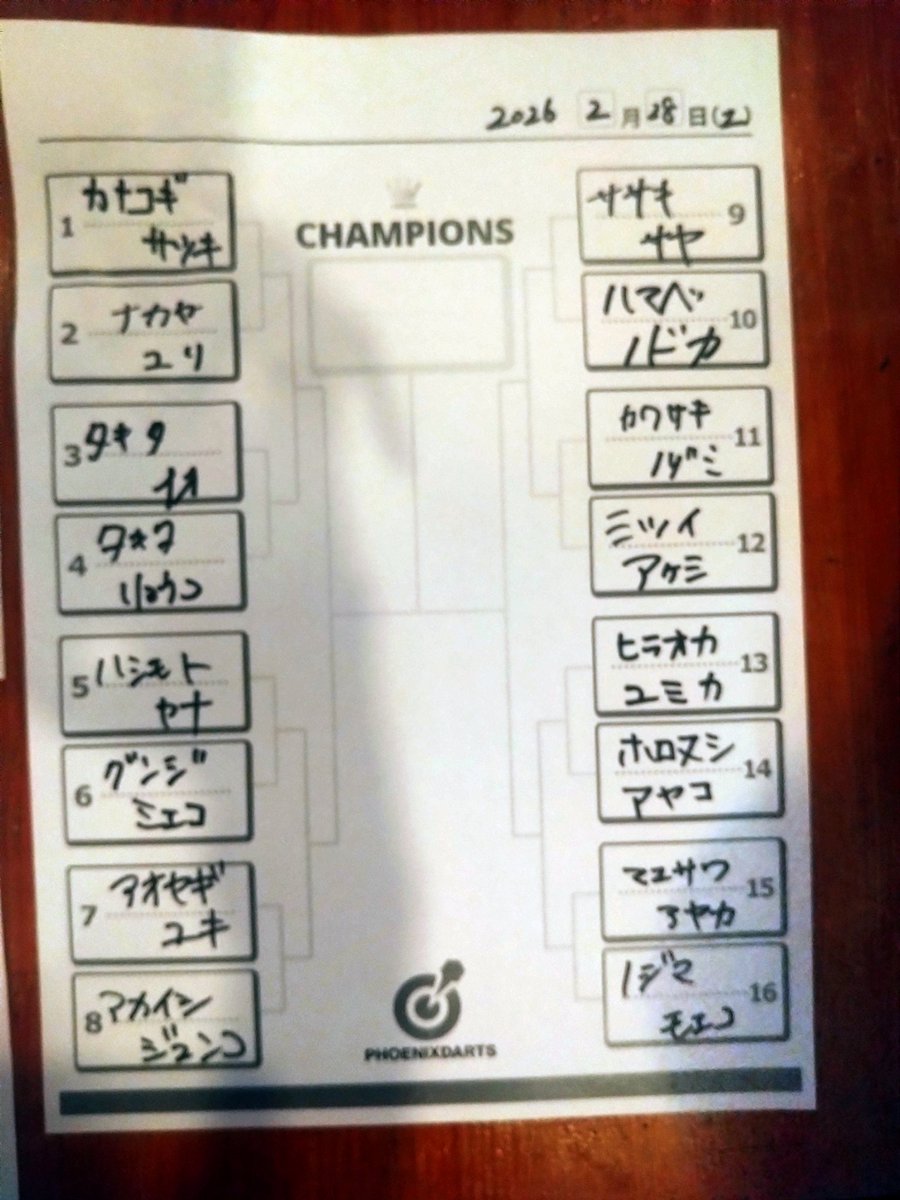 2026 2月28日(土)
CHAMPIONS
1
カナコギ
サツキ
2
ナカヤ
ユリ
3
タキタ
ナオ
4
リョウコ
5
ハシモト
ヤナ
6
グンジ
ミエコ
7
アオヤギ
ユキ
8
アカイシ
ジュンコ
ササキ
9
サヤ
ハマベ
10
ノドカ
カワサキ
11
ノゾミ
ミツイ
12
アケミ
ヒラオカ
13
ユミカ
ホロヌシ
14
アヤコ
マユサワ
15
アヤカ
ノジマ
16
モエコ
PHOENIXDARTS